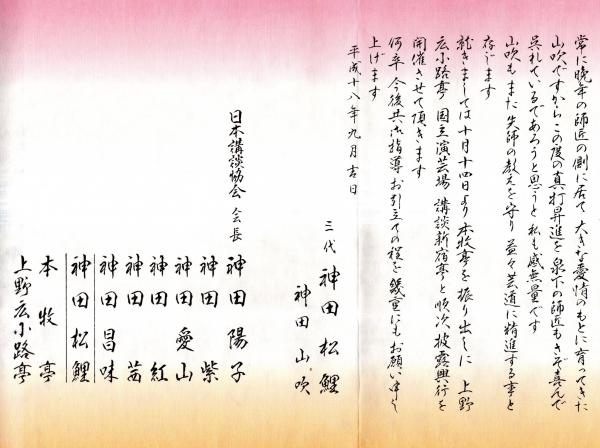 常に晩年の師匠の側に居て 大きな愛情のもとに育ってきた
山吹ですからこの度の真打昇進を 泉下の師匠もさぞ喜んで
呉れているであろうと思うと 私も感無量です
山吹も また 先師の教えを守り 益々芸道に精進する事と
存じます
就きましては十月十四日より 本牧亭を振り出しに 上野
広小路亭 国立演芸場 講談新宿亭と順次 披露興行を
開催させて頂きます
何卒 今後共御指導 お引立ての程を 幾重にもお願い申し
上げます
平成十八年九月吉日
三代 神田松鯉
神田山吹
日本講談協会 会長 神田陽子
神田紫
神田愛山
神田紅
神田茜
神田昌味
神田松鯉
本牧亭
上野広小路亭